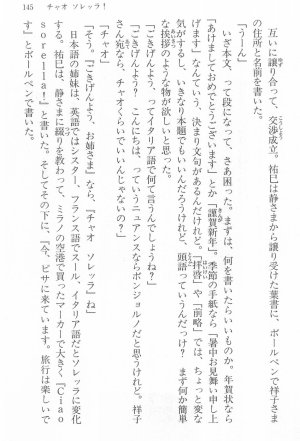 145 チャオ ソレッラ!
互いに譲り合って、交渉成立。祐巳は静さまから譲り受けた葉書に、ボールペンで祥子さま
の住所と名前を書いた。
「うーん」
いざ本文、って段になって、さあ困った。まずは、何を書いたらいいものか。年賀状なら
「あけましておめでとうございます」とか「謹賀新年」。季節の手紙なら「暑中お見舞い申し上
げます」なんていう、決まり文句があるんだけど。「拝啓」や「前略」では、ちょっと変な
気がするし、いきなり本題でもいいんだろうけれど、頭語っていうんだっけ? まず何か簡単
な挨拶のような物が欲しいと思った。
「ごきげんよう、ってイタリア語で何て言うんでしょうね?」
「ごきげんよう? こんにちは、っていうニュアンスならボンジョルノだと思うけれど。祥子
さん宛なら、チャオくらいでいいんじゃないの?」
「チャオ」
「そう。『ごきげんよう、お姉さま』なら、『チャオ ソレッラ』ね」
日本語の姉妹は、英語ではシスター、フランス語でスール、イタリア語だとソレッラに変化
する。祐巳は、静さまに綴りを教わって、ミラノの空港で買ったマーカーで大きく『Ciao
sorella!』と書いた。そしてその下に、『今、ピサに来ています。旅行は楽しいで
す』とボールペンで書いた。